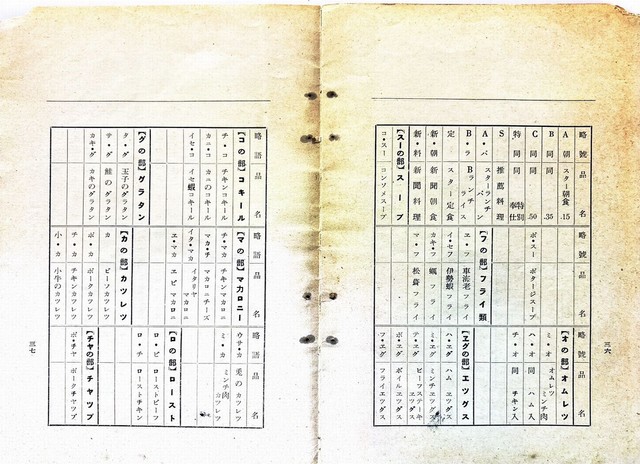 略號 品 名
A 朝 スター朝食 .15
B 同 同 .35
C 同 同 .50
特 同 同 特別奉仕
S 推薦料理
A・パ スターランチ パン
B・ラ Bランチ ライス
定 スター定食
新・朝 新聞朝食
新・料 新聞料理
【スーの部】スープ
コ・スー コンソメスープ
略號 品 名
ポ・スー ポタージスープ
【フの部】フライ類
エ・フ 車海老フライ
イセ・フ 伊勢蝦フライ
カキ・フ 蠣フライ
マ・フ フライ
略號 品 名
【オの部】オムレツ
ミ・オ オムレツ ミンチ肉
ハ・オ 同 ハム入
チ・オ 同 チキン入
【ヱグの部】ヱツグス
ハ・ヱグ ハムヱツグス
ミ・ヱグ ミンチヱツグス
テ・ヱグ ビーフステーキ ヱツグス
ボ・ヱグ ボイルヱツグス
フ・ヱグ フライエツグス
三六
略語 品 名
【コの部】コキール
チ・コ チキンコキール
カニ・コ カニのコキール
イセ・コ イセ蝦コキール
【グの部】グラタン
タ・グ 玉子のグラタン
テ・グ 鮭のグラタン
カキ・グ カキのグラタン
略語 品 名
【マの部】マカロニー
チ・マカ チキンマカロニ
マカ・チ マカロニチーズ
イタ・マカ イタリヤ マカロニ
エ・マカ エビマカロニ
【カの部】カツレツ
カ ビーフカツレツ
ポ・カ ポークカツレツ
チ・カ チキンカツレツ
小・カ 小牛のカツレツ
略語 品 名
ウサ・カ 兎のカツレツ
ミ・カ ミンチ肉 カツレツ
【ロの部】ロースト
ロ・ビ ローストビーフ
ロ・チ ローストチキン
【チヤの部】チヤツプ
ポ・チヤ ポークチヤツプ
三七